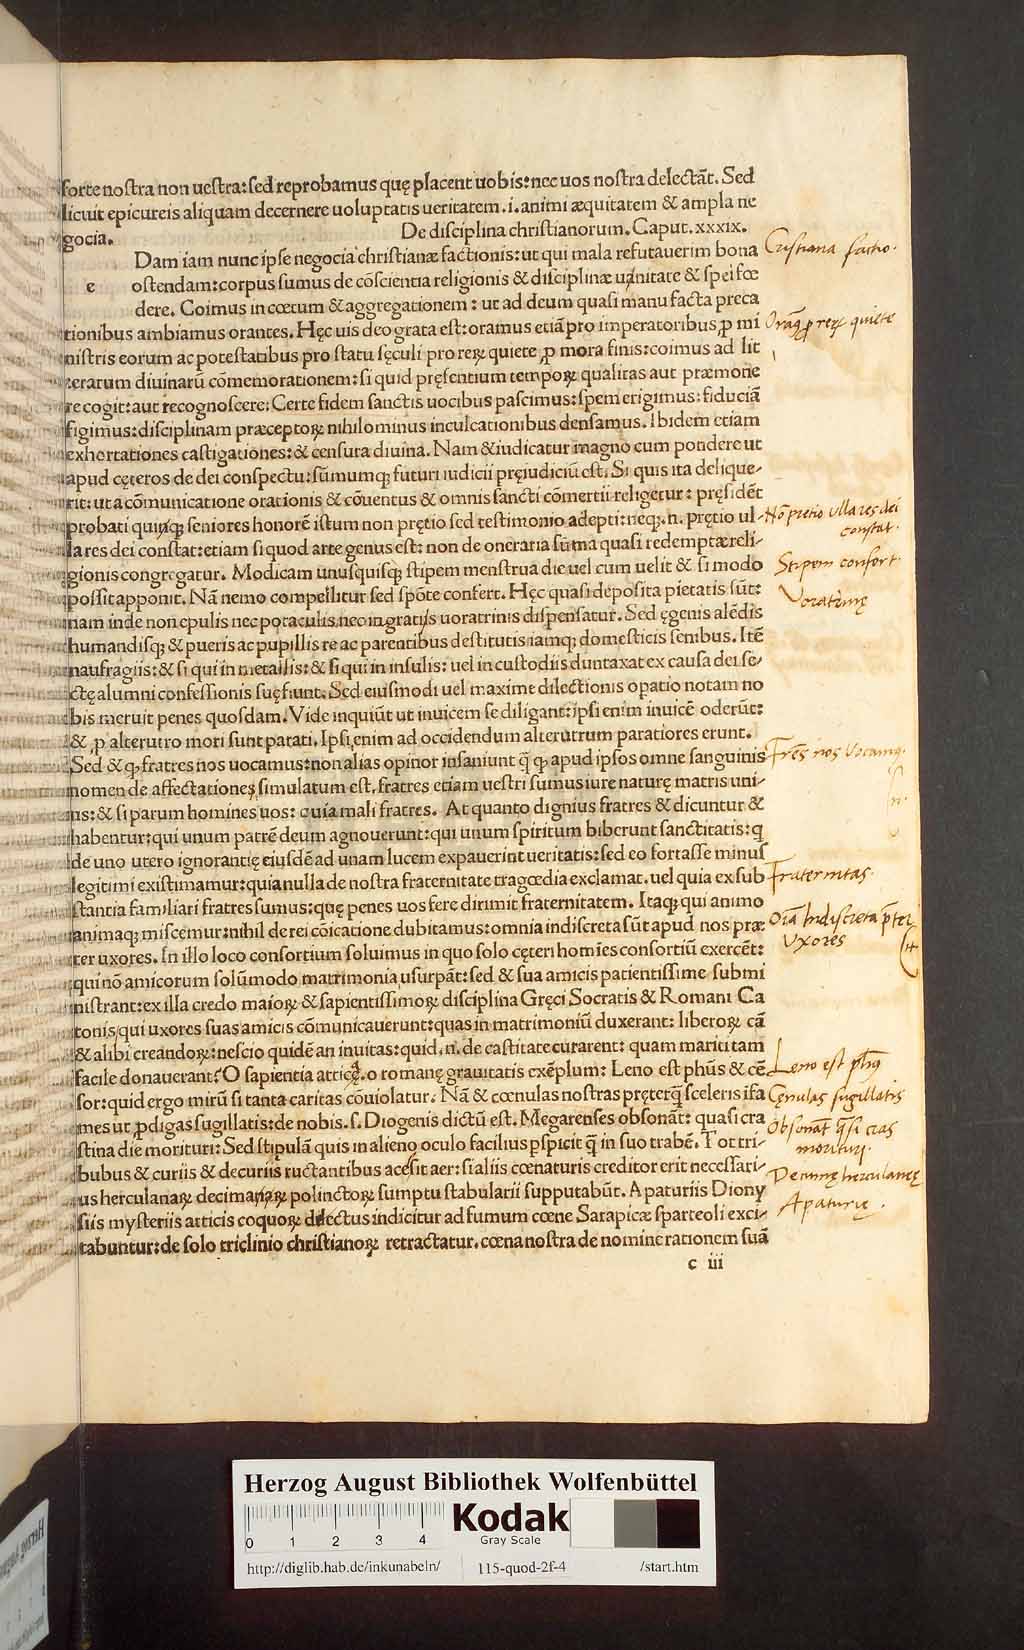 forte nostra non uestra: sed reprobamus quę placent uobis: nec uos nostra delectāt. Sed
licuit epicureis aliquam decernere uoluptatis ueritatem. i. animi æquitatem & ampla ne
gocia. De disciplina christianorum. Caput. xxxix.
Dam iam nunc ipse negocia christianæ factionis: ut qui mala refutauerim bona
e ostendam: corpus sumus de cōscientia religionis & disciplinæ unitate & spei fœ
dere. Coimus in cœtum & aggregationem: ut ad deum quasi manu facta preca
tionibus ambiamus orantes. Hęc uis deo grata est: oramus etiā pro imperatoribus ꝓ mi
nistris eorum ac potestatibus pro statu sęculi pro rerꝝ quiete ꝓ mora finis: coimus ad lit
terarum diuinarū cōmemorationem: si quid pręsentium temporꝝ qualitas aut præmone
re cogit: aut recognoscere: Certe fidem sanctis uocibus pascimus: spem erigimus: fiduciā
figimus: disciplinam præceptorꝝ nihilominus inculcationibus densamus. Ibidem etiam
exhortationes castigationes: & censura diuina. Nam & iudicatur magno cum pondere ut
apud cęteros de dei conspectu: sūmumqꝫ futuri iudicii pręiudiciū est. Si quis ita delique-
rit: ut a cōmunicatione orationis & cōuentus & omnis sancti cōmertii religetur: pręsidēt
probati quiqꝫ seniores honorē istum non prętio sed testimonio adepti: neqꝫ. n. prętio ul-
la res dei constat: etiam si quod arte genus est: non de oneraria sūma quasi redemptæ reli-
gionis congregatur. Modicam unusquisqꝫ stipem menstrua die uel cum uelit & si modo
possit apponit. Nā nemo compellitur sed spōte confert. Hęc quasi deposita pietatis sūt:
nam inde non epulis nec potaculis nec ingratis uoratrinis dispensatur. Sed ęgenis alēdis
humandisqꝫ & pueris ac pupillis re ac parentibus destitutis iamqꝫ domesticis senibus. Itē
naufragiis: & si qui in metallis: & si qui in insulis: uel in custodiis duntaxat ex causa dei se-
ctę alumni confessionis suę fiunt. Sed eiusmodi uel maxime dilectionis opatio notam no
bis meruit penes quosdam. Vide inquiūt ut inuicem se diligant: ipsi enim inuicē oderūt:
& ꝓ alterutro mori sunt parati. Ipsi enim ad occidendum alterutrum paratiores erunt.
Sed & qꝫ fratres nos uocamus: non alias opinor insaniunt q̄ qꝫ apud ipsos omne sanguinis
nomen de affectationes simulatum est. fratres etiam uestri sumus iure naturę matris uni-
us: & si parum homines uos: cuia mali fratres. At quanto dignius fratres & dicuntur &
habentur: qui unum patrē deum agnouerunt: qui unum spiritum biberunt sanctitatis: q̄
de uno utero ignorantię eiusdē ad unam lucem expauerint ueritatis: sed eo fortasse minus
legitimi existimamur: quia nulla de nostra fraternitate tragœdia exclamat. uel quia ex sub
stantia familiari fratres sumus: quę penes uos fere dirimit fraternitatem. Itaqꝫ qui animo
animaqꝫ miscemur: nihil de rei cōicatione dubitamus: omnia indiscreta sūt apud nos præ
ter uxores. In illo loco consortium soluimus in quo solo cęteri homīes consortiū exercēt:
qui nō amicorum solūmodo matrimonia usurpāt: sed & sua amicis patientissime submi
nistrant: ex illa credo maiorꝝ & sapientissimorꝝ disciplina Gręci Socratis & Romani Ca
tonis qui uxores suas amicis cōmunicauerunt: quas in matrimoniū duxerant: liberorꝝ cā
& alibi creandorꝝ: nescio quidē an inuitas: quid. n. de castitate curarent: quam mariti tam
facile donauerant? O sapientia atticę. o romanę grauitatis exēplum: Leno est phūs & cē
sor: quid ergo mirū si tanta caritas cōuiolatur. Nā & cœnulas nostras pręterq̄ sceleris ifa
mes ut ꝓdigas sugillatis: de nobis. s. Diogenis dictū est. Megarenses obsonāt: quasi cra
stina die morituri: Sed stipulā quis in alieno oculo facilius pspicit q̄ in suo trabē. Tot tri-
bubus & curiis & decuriis ructantibus acesit aer: si aliis cœnaturis creditor erit necessari-
us herculanarꝝ decimarꝝ polinctorꝝ sumptu stabularii supputabūt. Apaturiis Diony
siis mysteriis atticis coquorꝝ delectus indicitur ad fumum cœne Sarapicæ sparteoli exci-
tabuntur: de solo triclinio christianorꝝ retractatur. cœna nostra de nomine rationem suā
c iii
Cristiana factio.
quiete
Nō pretio ulla res dei
constat.
Stipem confert.
Voratrinę
Frēs nos vocamꝰ.
Fraternitas.
Oīa Indiscreta p̄ter
Vxores
Leno est phūs
Cęnulas sugillatis
Obsonāt q̄si cras
morituri.
Decimę herculanę
Apaturię.
Herzog August Bibliothek Wolfenbüttel
0 1 2 3 4
Kodak
Gray Scale
http://diglib.hab.de/inkunabeln/ 115-quod-2f-4 /start.htm